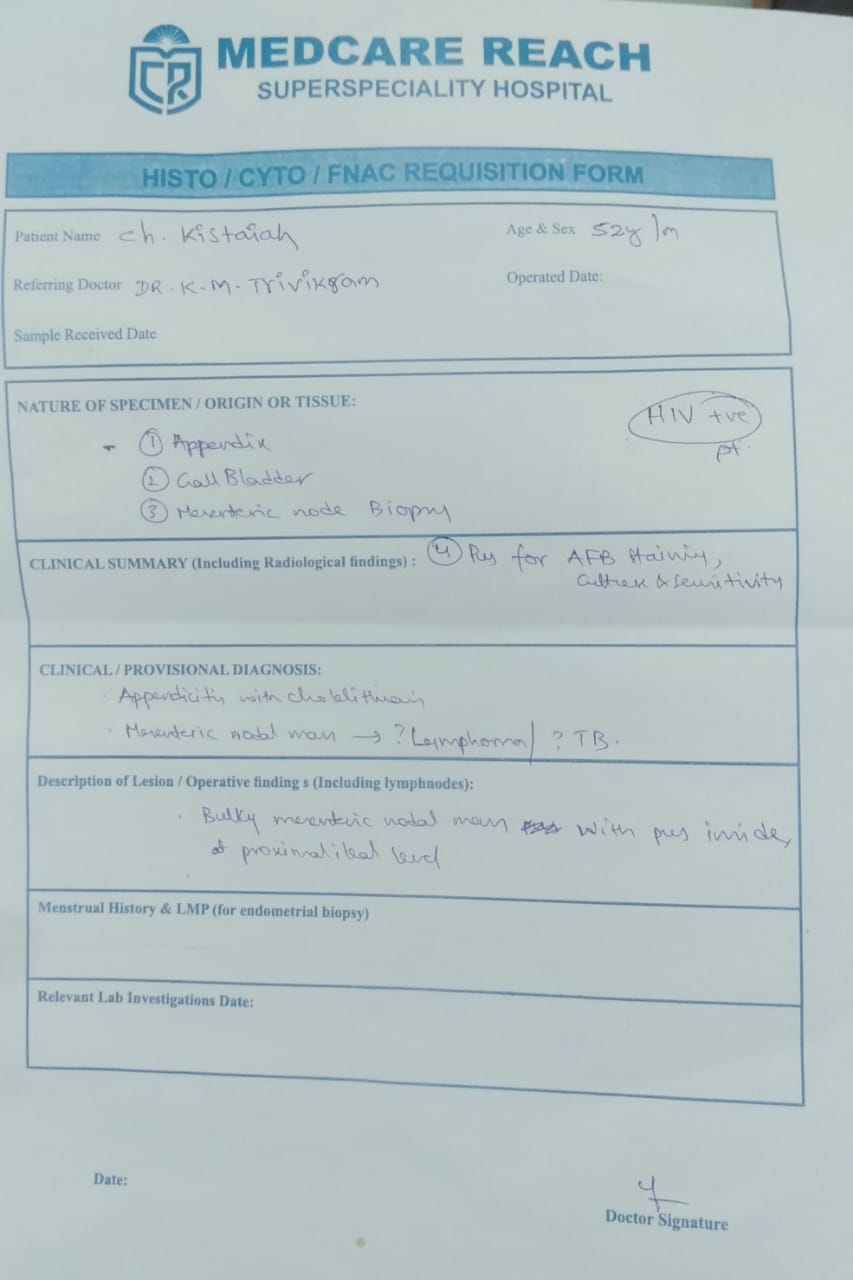 CR
MEDCARE REACH
SUPERSPECIALITY HOSPITAL
HISTO / CYTO / FNAC REQUISITION FORM
Patient Name ch. Kistaiah
Age & Sex 52y/m
Referring Doctor DR. K. M. Trivikram
Operated Date:
Sample Received Date
NATURE OF SPECIMEN / ORIGIN OR TISSUE:
HIV +ve
pt.
- ① Appendix
② Gall Bladder
③ Mesenteric node Biopsy
CLINICAL SUMMARY (Including Radiological findings) : ④ Pus for AFB staining,
culture & sensitivity
CLINICAL / PROVISIONAL DIAGNOSIS:
· Appendicitis with
· Mesenteric nodal mass → ? Lymphoma / ? TB.
Description of Lesion / Operative finding s (Including lymphnodes):
· Bulky mesenteric nodal mass with pus inside,
at proximal ileal level
Menstrual History & LMP (for endometrial biopsy)
Relevant Lab Investigations Date:
Date:
Doctor Signature